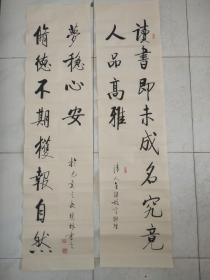 讀書即未成名究竟
人品高雅
脩德不期獲報自然
夢穩心安